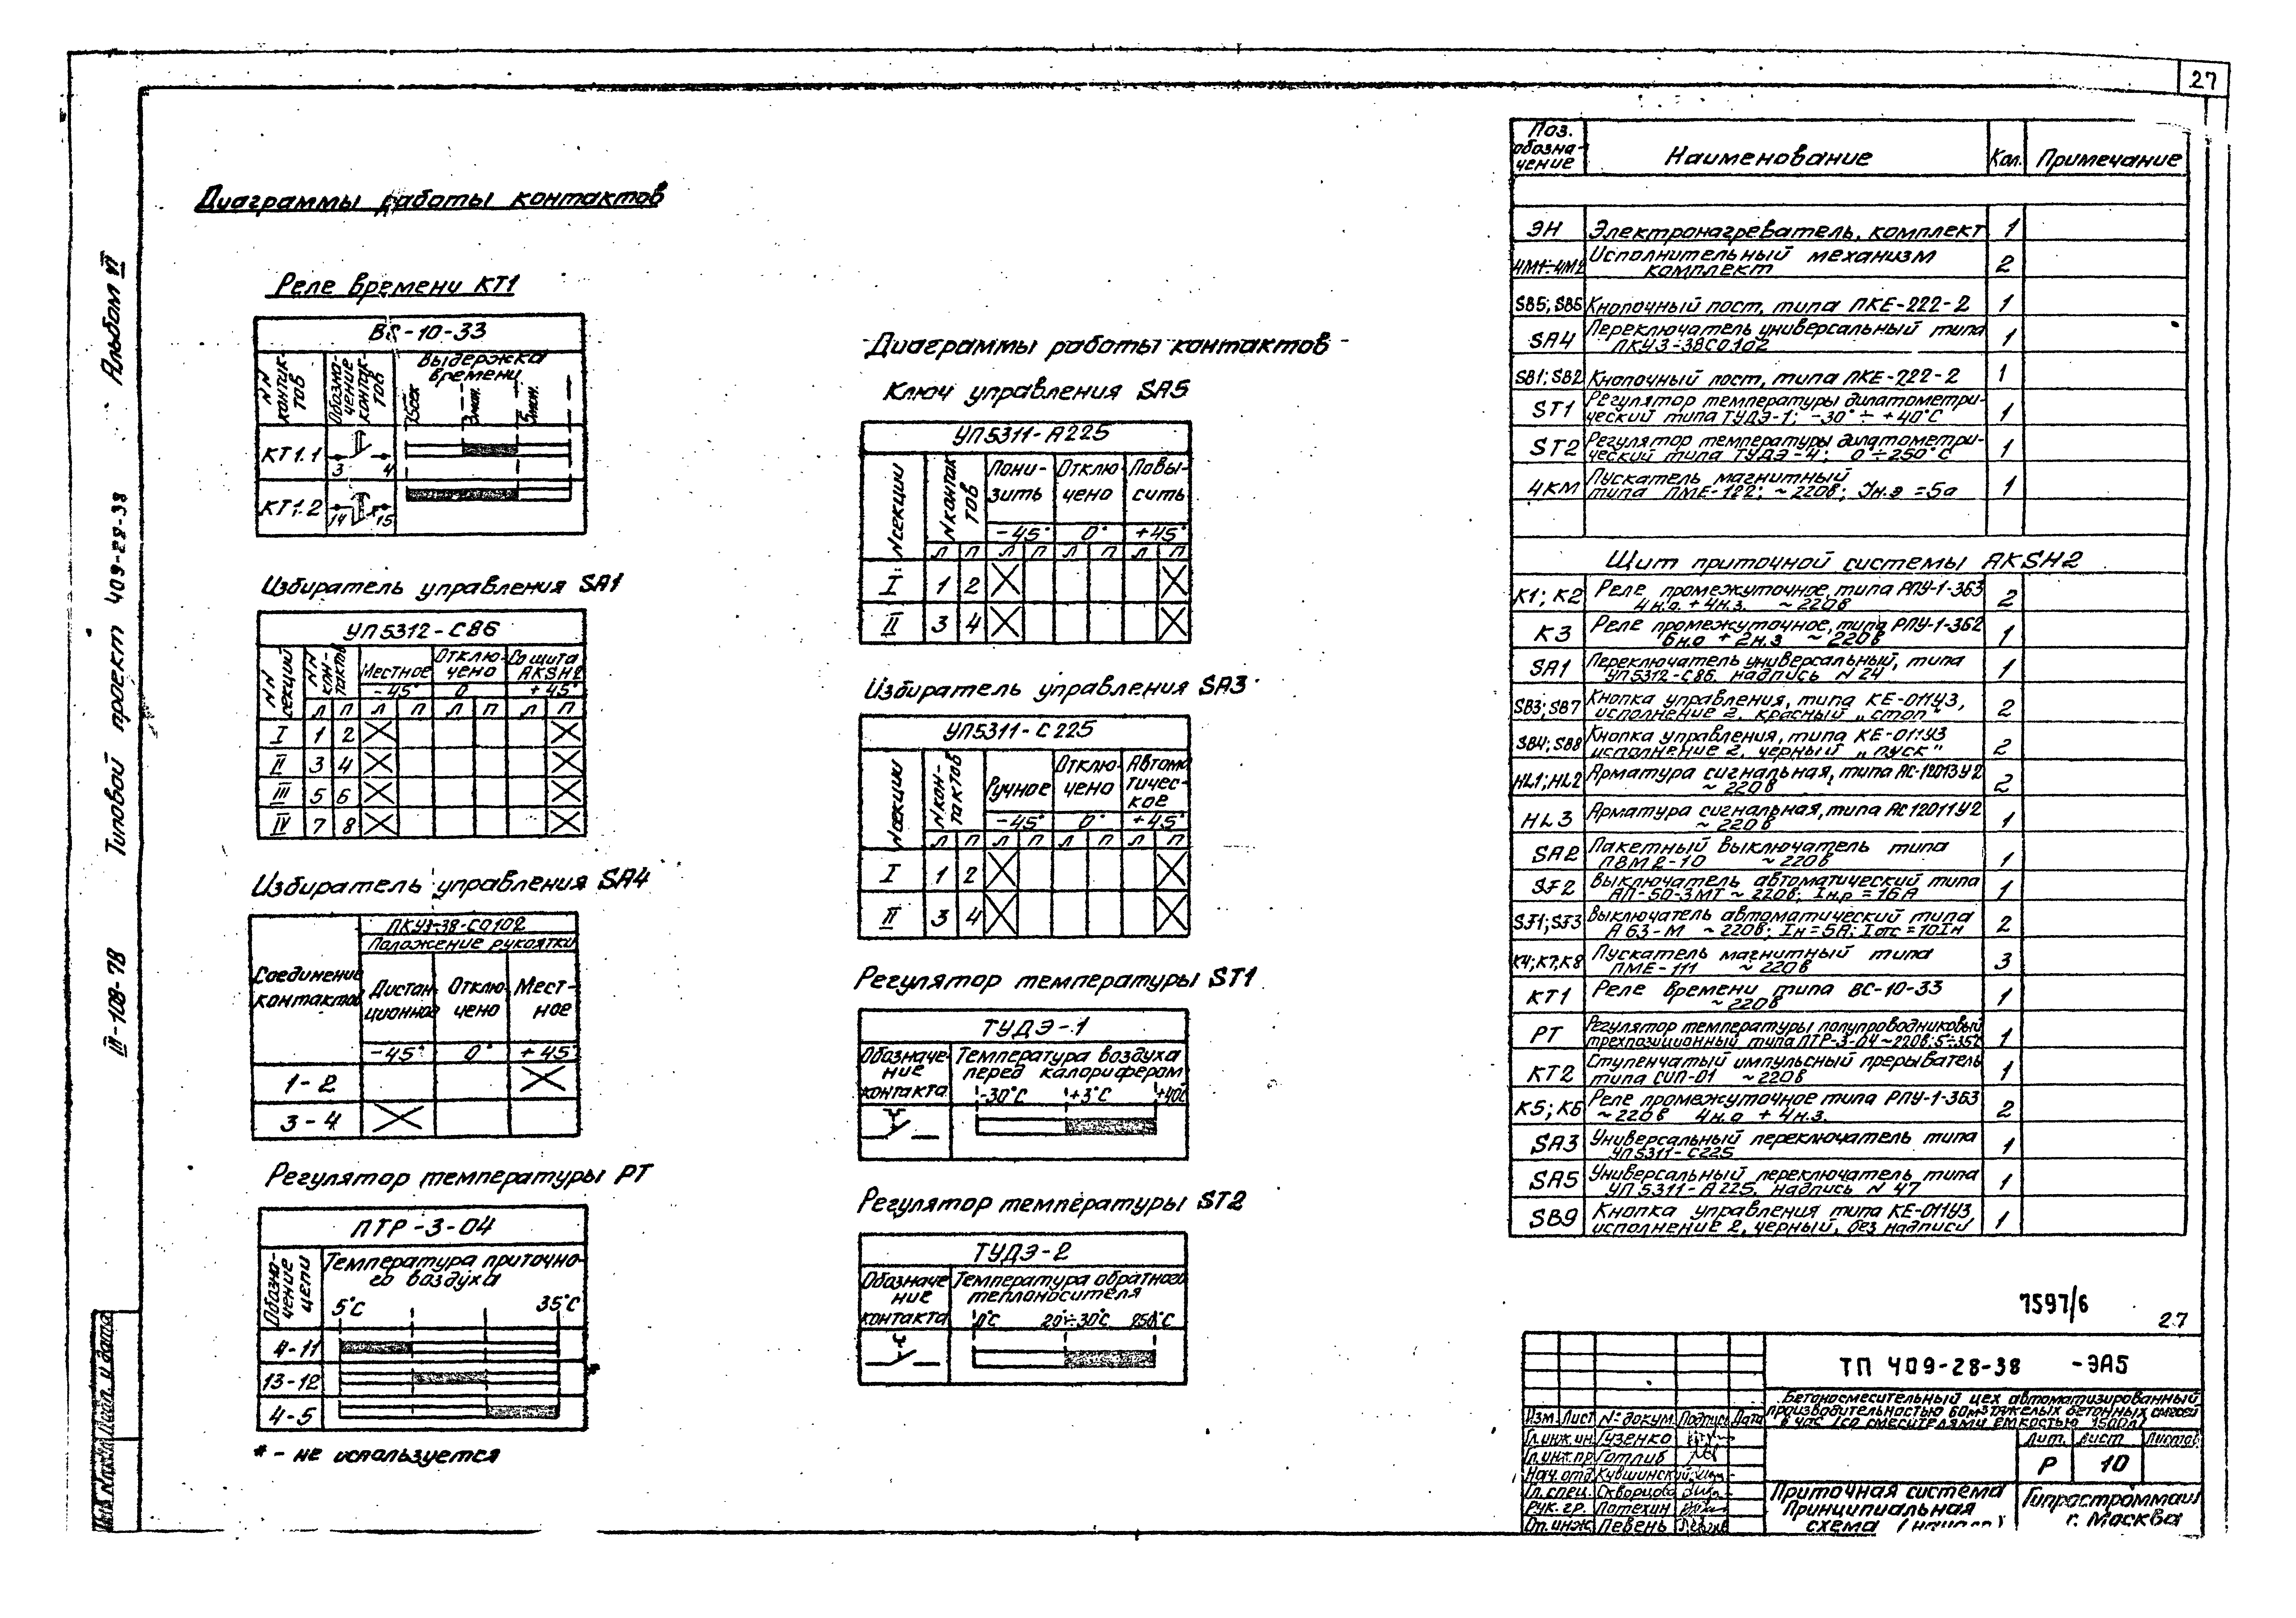 27
Альбом VI
Типовой проект 409-28-38
III-108-78
Диаграммы работы контактов
Реле времени КТ1
ВС-10-33
NN контак-тов
Обозна-чение контак-тов
Выдержка времени
15сек
3мин.
5мин.
КТ1.1
3 4
КТ1.2
14 15
Избиратель управления SA1
УП5312-С86
NN секций
NN кон-тактов
Местное
Отклю-чено
Со щита AKSH2
-45° 0 +45°
Л П Л П Л П Л П
I 1 2
II 3 4
III 5 6
IV 7 8
Избиратель управления SA4
ПКУ3-38-С0102
Положение рукоятки
Соединение контактов
Дистан-ционное
Отклю-чено
Мест-ное
-45° 0° +45°
1-2
3-4
Регулятор температуры РТ
ПТР-3-04
Обозна-чение цепи
Температура приточно-го воздуха
5°С 35°С
4-11
13-12 *
4-5
* - не используется
Диаграммы работы контактов
Ключ управления SA5
УП5311-А225
N секции
N контак-тов
Пони-зить
Отклю-чено
Повы-сить
-45° 0° +45°
Л П Л П Л П Л П
I 1 2
II 3 4
Избиратель управления SA3
УП5311-С225
N секции
N кон-тактов
Ручное
Отклю-чено
Автома-тичес-кое
-45° 0° +45°
Л П Л П Л П Л П
I 1 2
II 3 4
Регулятор температуры ST1
ТУДЭ-1
Обозначе-ние контакта
Температура воздуха
перед калорифером
-30°С +3°С +40°С
Регулятор температуры ST2
ТУДЭ-2
Обозначе-ние контакта
Температура обратного
теплоносителя
0°С 20÷30°С 250°С
Поз. обозна-чение
Наименование
Кол.
Примечание
ЭН Электронагреватель, комплект 1
4М1÷4М2 Исполнительный механизм
комплект 2
SB5; SB6 Кнопочный пост, типа ПКЕ-222-2 1
SA4 Переключатель универсальный типа
ПКУ3-38С0102 1
SB1; SB2 Кнопочный пост, типа ПКЕ-222-2 1
ST1 Регулятор температуры дилатометри-
ческий типа ТУДЭ-1; -30° ÷ +40°С 1
ST2 Регулятор температуры дилатометри-
ческий типа ТУДЭ-4; 0÷250°С 1
4КМ Пускатель магнитный
типа ПМЕ-122; ~220в; Iн.э =5а 1
Щит приточной системы AKSH2
К1; К2 Реле промежуточное, типа РПУ-1-363
4н.о. + 4н.з. ~220в 2
К3 Реле промежуточное, типа РПУ-1-362
6н.о + 2н.з ~220в 1
SA1 Переключатель универсальный, типа
УП5312-С86 надпись N 24 1
SB3; SB7 Кнопка управления, типа КЕ-011У3,
исполнение 2, красный „стоп“ 2
SB4; SB8 Кнопка управления, типа КЕ-011У3
исполнение 2, черный „пуск“ 2
HL1; HL2 Арматура сигнальная, типа АС-12013У2
~220в 2
HL3 Арматура сигнальная, типа АС12011У2
~220в 1
SA2 Пакетный выключатель типа
ПВМ2-10 ~220в 1
SF2 Выключатель автоматический типа
АП-50-3МТ ~220в; Iн.р =16А 1
SF1; SF3 Выключатель автоматический типа
А63-М ~220в; Iн=5А; Iотс=10Iн 2
К4; К7, К8 Пускатель магнитный типа
ПМЕ-111 ~220в 3
КТ1 Реле времени типа ВС-10-33
~220в 1
РТ Регулятор температуры полупроводниковый
трехпозиционный типа ПТР-3-04 ~220в; 5÷35С 1
КТ2 Ступенчатый импульсный прерыватель
типа СИП-01 ~220в 1
К5; К6 Реле промежуточное типа РПУ-1-363
~220в 4н.о + 4н.з. 2
SA3 Универсальный переключатель типа
УП5311-С225 1
SA5 Универсальный переключатель типа
УП5311-А225, надпись N 47 1
SB9 Кнопка управления типа КЕ-011У3
исполнение 2, черный, без надписи 1
7597/6
27
ТП 409-28-38 -ЭА5
Бетоносмесительный цех автоматизированный
производительностью 60м³ тяжелых бетонных смесей
в час (со смесителями емкостью 1500л)
Изм. Лист № докум. Подпись Дата
Гл.инж.ин Гузенко
Гл.инж.пр Готлиб
Нач.отд Кувшинский
Гл.спец. Скворцова
Рук.гр. Потехин
Ст.инж Певень
Лит. Лист Листов
Р 10
Приточная система
Принципиальная
схема
Гипростроммаш
г. Москва